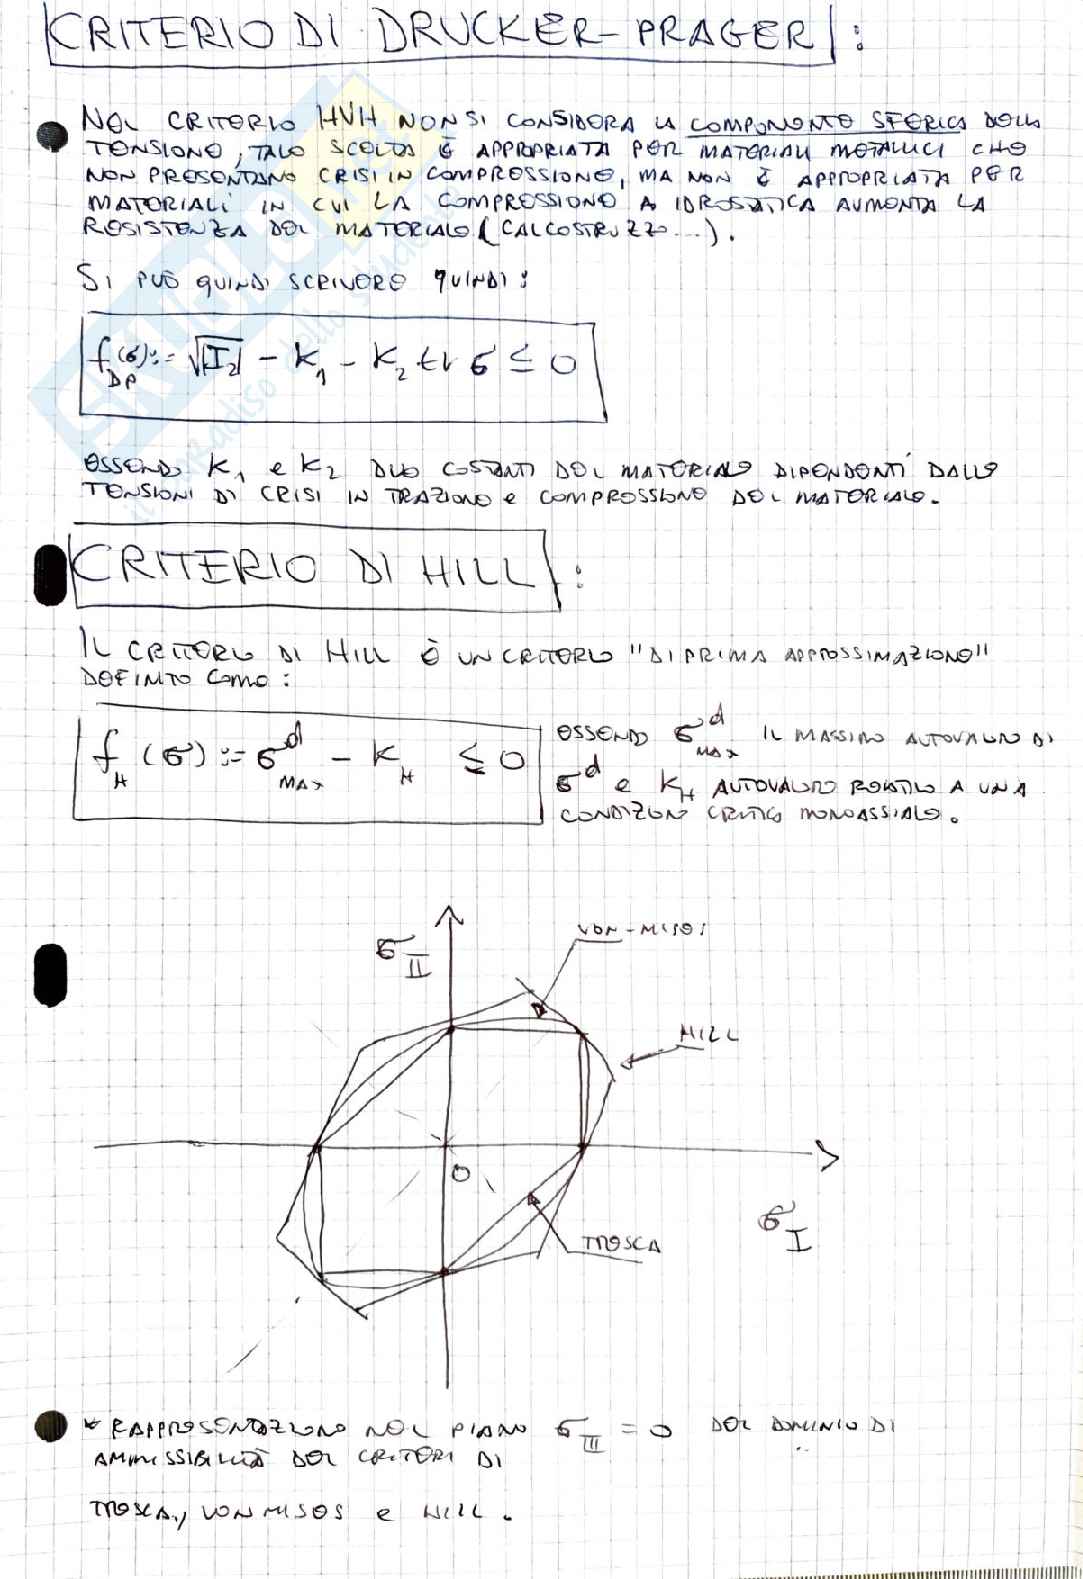 CRITERIO DI DRUCKER-PRAGER :
NEL CRITERIO HVH NON SI CONSIDERA LA COMPONENTE SFERICA DELLA
TENSIONE, TALE SCELTA È APPROPRIATA PER MATERIALI METALLICI CHE
NON PRESENTANO CRISI IN COMPRESSIONE, MA NON È APPROPRIATA PER
MATERIALI IN CUI LA COMPRESSIONE A IDROSTATICA AUMENTA LA
RESISTENZA DEL MATERIALE (CALCESTRUZZO...).
SI PUÒ QUINDI SCRIVERE QUINDI :
f_DP(σ) := √|I₂| - K₁ - K₂ tr σ ≤ 0
ESSENDO K₁ e K₂ DUE COSTANTI DEL MATERIALE DIPENDENTI DALLE
TENSIONI DI CRISI IN TRAZIONE e COMPRESSIONE DEL MATERIALE.
CRITERIO DI HILL :
IL CRITERIO DI HILL È UN CRITERIO "DI PRIMA APPROSSIMAZIONE"
DEFINITO COME :
f_H (σ) := σ^d_MAX - K_H ≤ 0
ESSENDO σ^d_MAX IL MASSIMO AUTOVALORE DI
σ^d e K_H AUTOVALORE RELATIVO A UNA
CONDIZIONE CRITICA MONOASSIALE.
σ_II
VON-MISES
HILL
O
σ_I
TRESCA
* RAPPRESENTAZIONE NEL PIANO σ_III = 0 DEL DOMINIO DI
AMMISSIBILITÀ DEL CRITERI DI
TRESCA, VON MISES e HILL.
SKUOLA.net
il paradiso dello studente